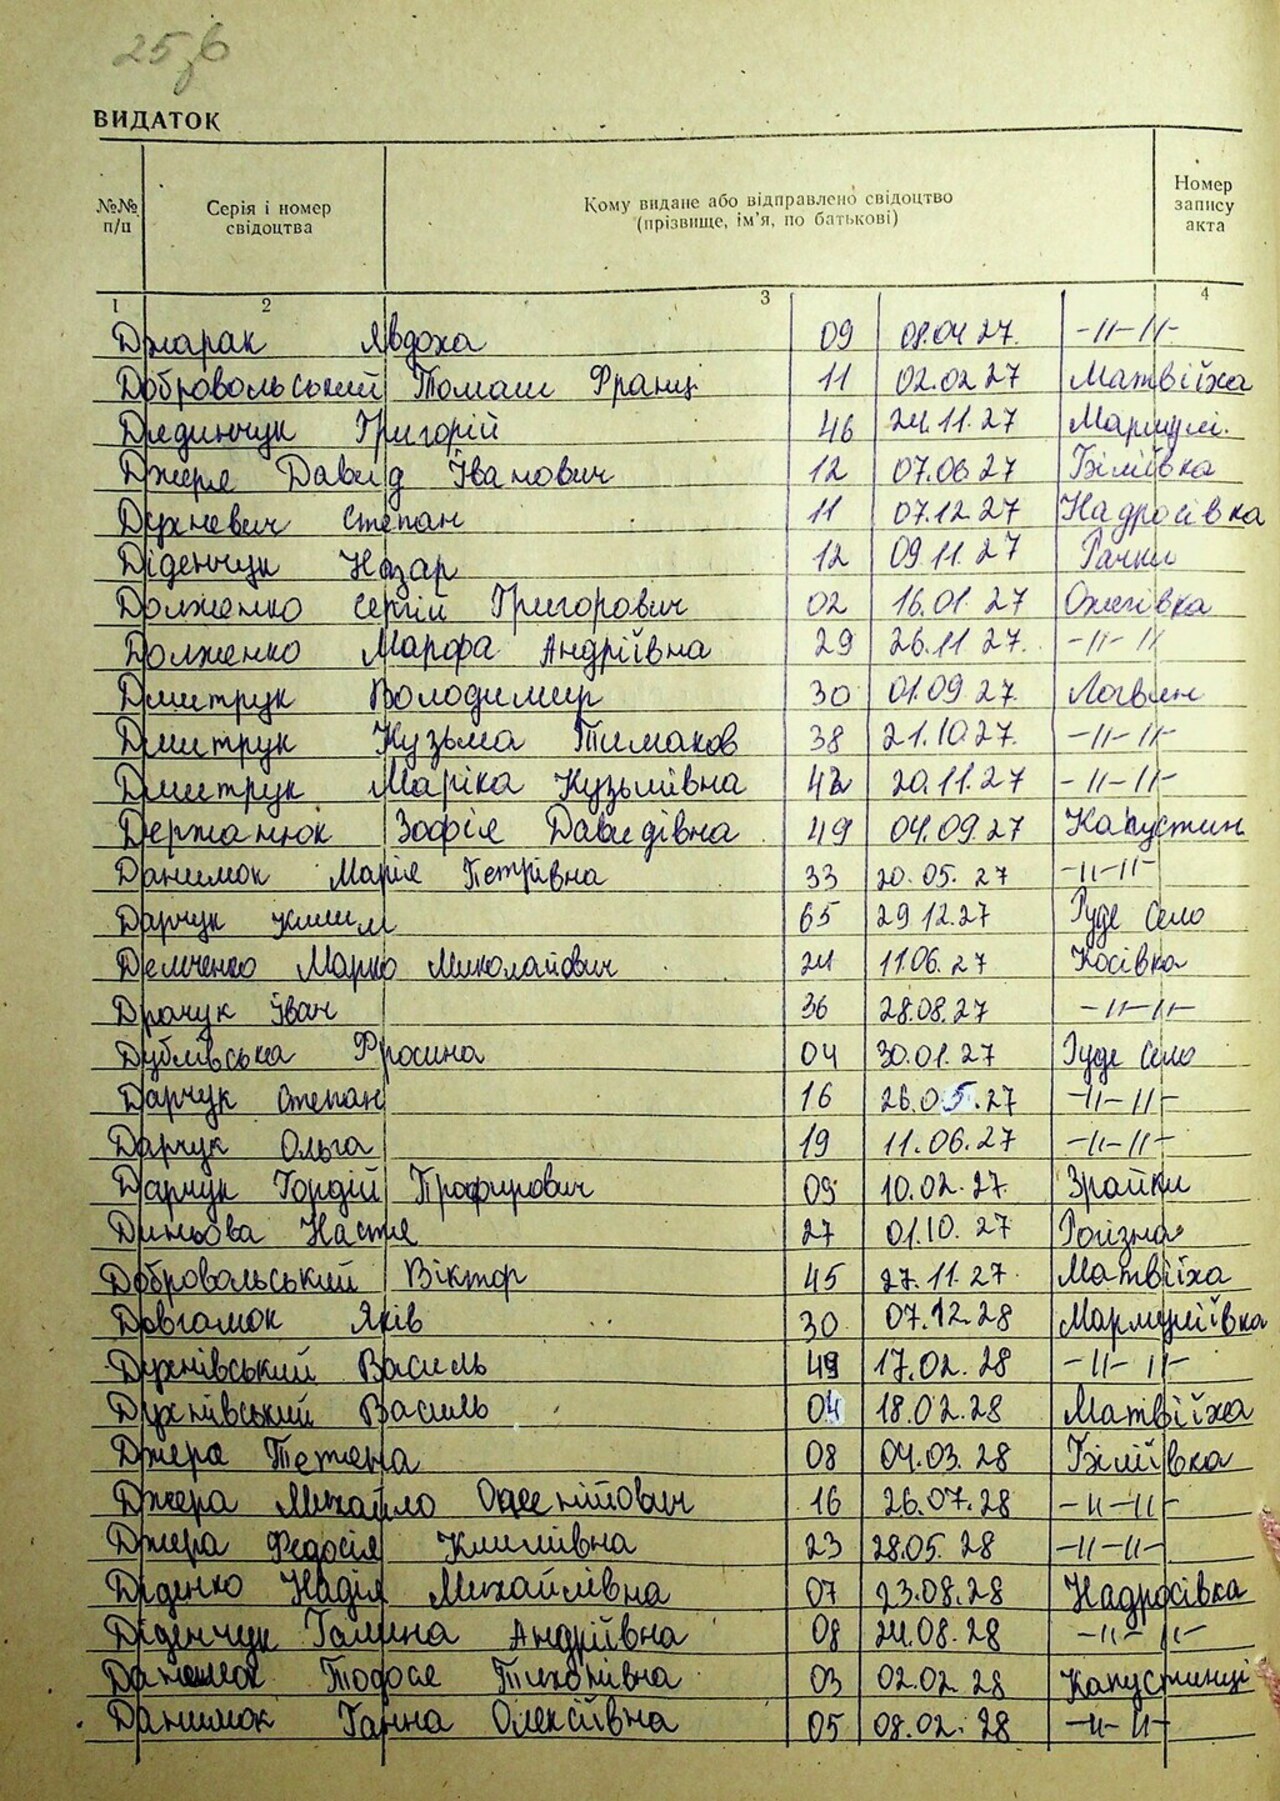 25зв
ВИДАТОК
№№ п/п Серія і номер свідоцтва Кому видане або відправлено свідоцтво (прізвище, ім'я, по батькові) Номер запису акта
1 2 3 4
Джарак Явдоха 09 08.04.27. -||-||-
Добровольський Томаш Франц. 11 02.02.27 Матвіїха
Дядинчук Григорій 46 24.11.27
Джеря Давид Іванович 12 07.06.27 Біліївка
Духневич Степан 11 07.12.27 Надросівка
Діденчук Назар 12 09.11.27 Рачки
Долженко Сергій Григорович 02 16.01.27 Ожегівка
Долженко Марфа Андріївна 29 26.11.27. -||-||
Дмитрук Володимир 30 01.09.27. Логвин
Дмитрук Кузьма Тимаков 38 21.10.27. -||-||-
Дмитрук Маріка Кузьмівна 42 20.11.27 -||-||-
Держанюк Зофія Давидівна 49 04.09.27 Капустин
Данимок Марія Петрівна 33 20.05.27 -||-||-
Дарчук Клим 65 29.12.27 Руде Село
Демченко Марко Миколайович 24 11.06.27 Косівка
Драчук Іван 36 28.08.27 -||-||-
Дублівська Фросина 04 30.01.27 Руде Село
Дарчук Степан 16 26.05.27 -||-||-
Дарчук Ольга 19 11.06.27 -||-||-
Дарчук Гордій Профирович 09 10.02.27. Зрайки
Диньова Настя 27 01.10.27 Рогізна
Добровольський Віктор 45 27.11.27. Матвіїха
Довгамок Яків 30 07.12.28 Мармуліївка
Духнівський Василь 49 17.02.28 -||-||-
Духнівський Василь 04 18.02.28 Матвіїха
Джера Тетяна 08 04.03.28 Біліївка
Джера Михайло 16 26.07.28 -||-||-
Джера Федосія Климівна 23 28.05.28 -||-||-
Діденко Надія Михайлівна 07 23.08.28 Надросівка
Діденчук Галина Андріївна 08 24.08.28 -||-||-
Данимок Тодося Тихонівна 03 02.02.28 Капустинці
Данимок Ганна Олексіївна 05 08.02.28 -||-||-